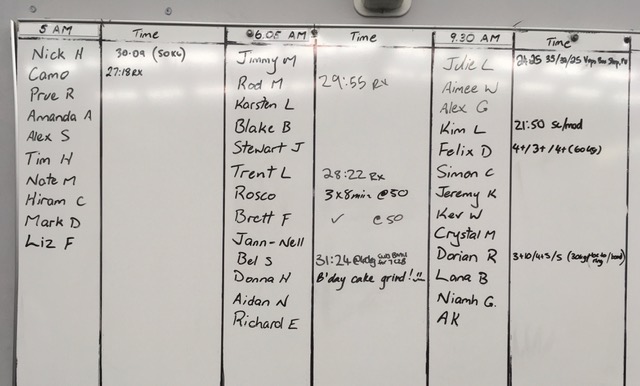 5 AM Time 6.05 AM Time 9.30 AM Time
Nick H 30:09 (50KG)
Camo 27:18 RX
Prue R
Amanda A
Alex S
Tim H
Nate M
Hiram C
Mark D
Liz F
Jimmy M
Rod M 29:55 RX
Karsten L
Blake B
Stewart J
Trent L 28:22 RX
Rosco 3x8min @50
Brett F ✓ @50
Jann-Nell
Bel S 31:24 @40kg
Donna H B'day cake grind!!
Aidan N
Richard E
Julie L 24:25 35/30/25
Aimee W
Alex G
Kim L 21:50 Sc/mod
Felix D 4+/3+/4+ (60kg)
Simon C
Jeremy K
Kev W
Crystal M
Dorian R 3+10/4+5/5
Lana B
Niamh G.
AK